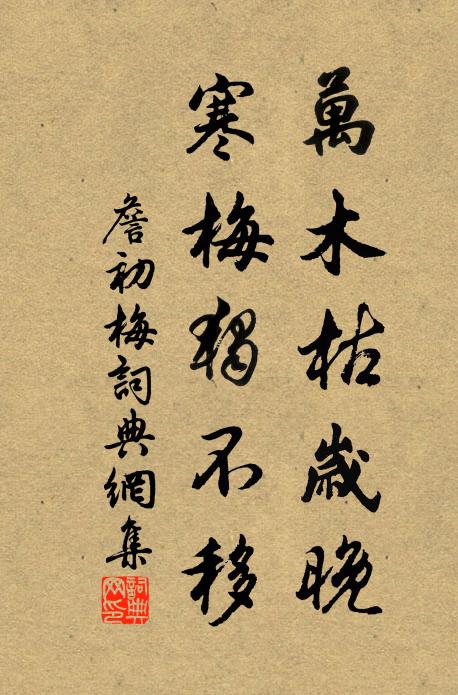 萬木枯歲晚
寒梅獨不移
詹初梅詞典網集
詞典网印